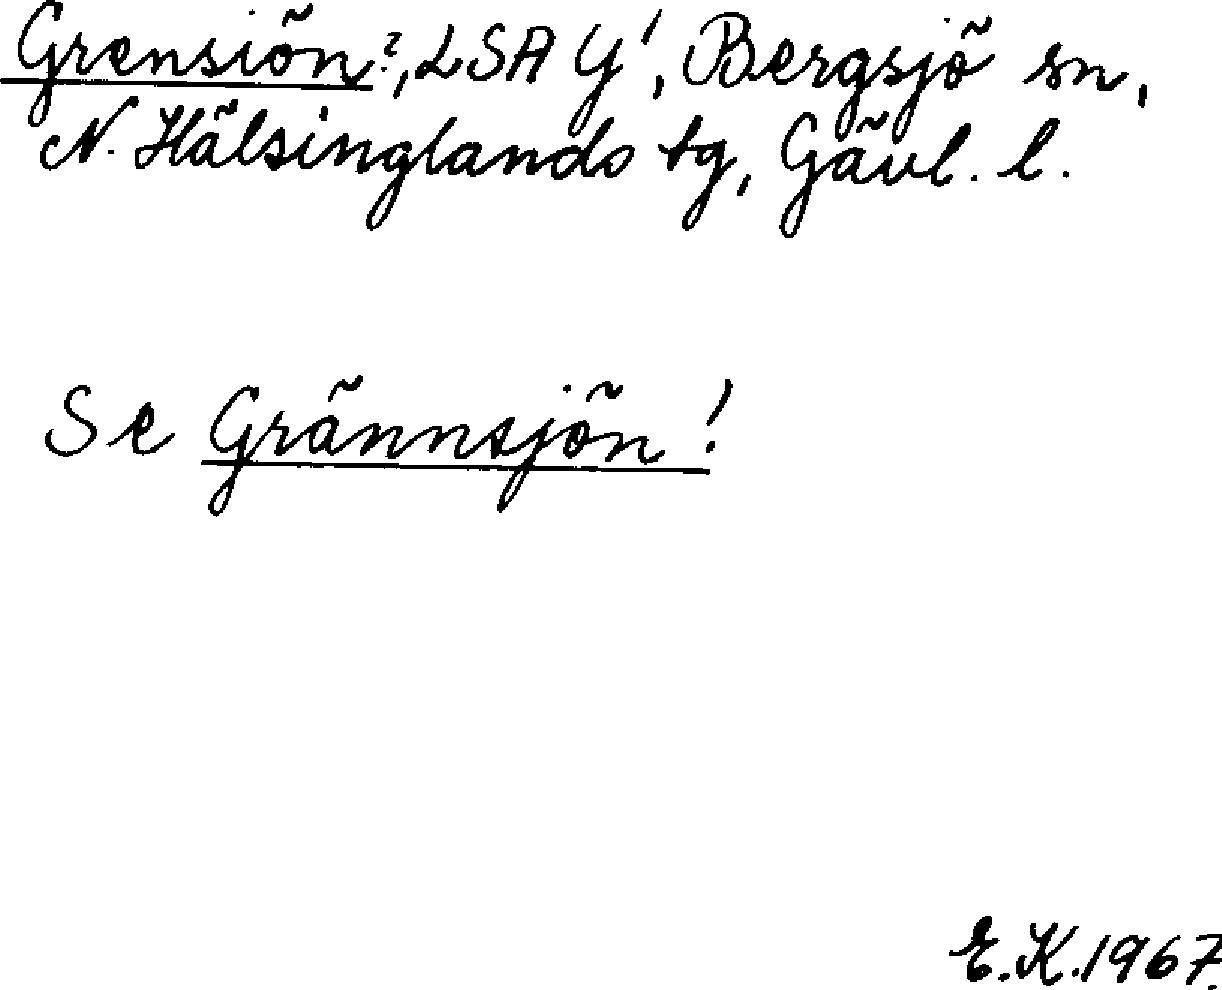 Grensiön?, LSA Y', Bergsjö sn,
N. Hälsinglands tg, Gävl. l.
Se Grännsjön!
E.K. 1967.